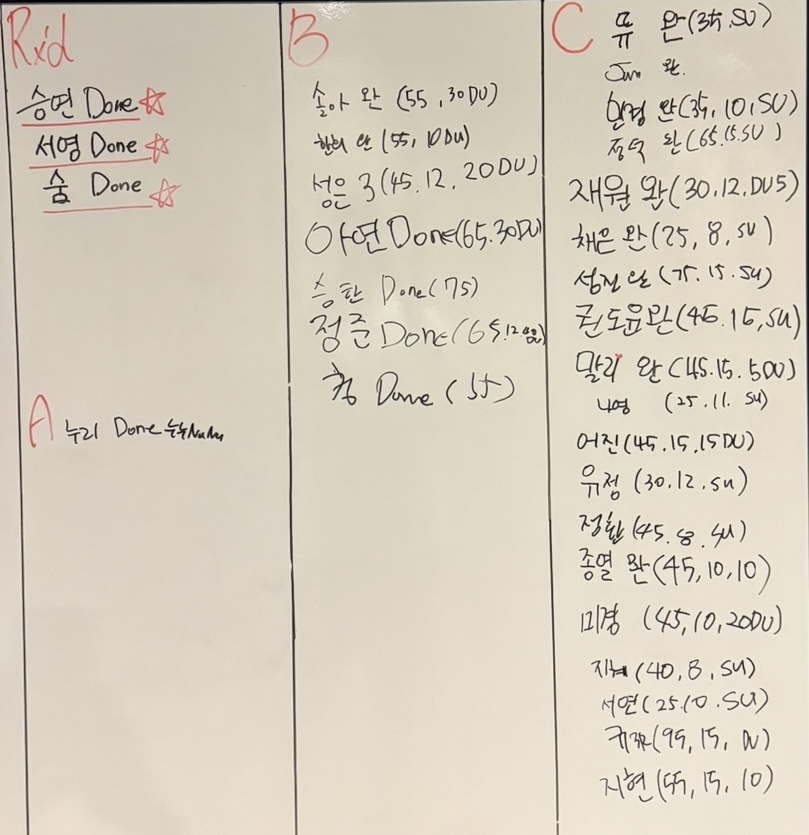 Rx'd
승연 Done
서영 Done
숨 Done
A 누리 Done 눅눅NuNu
B
솔아 완 (55, 30DU)
한의 완 (55, 10DU)
성은 3 (45.12. 20DU)
아연 Done (65.30DU)
승환 Done (75)
정준 Done (65.12
Done (55)
C 뮤 완 (35, SU)
Jun 완.
완 (35, 10, SU)
정덕 완 (65.15.SU)
재원 완 (30.12.DU5)
채은 완 (25, 8, SU)
성진 완 (75.15.SU)
권도윤 완 (45.15, SU)
말리 완 (45.15.5DU)
나영 (25.11.SU)
어진 (45.15.15DU)
유정 (30.12.SU)
정환 (45.8.SU)
종열 완 (45,10,10)
미경 (45,10,20DU)
지혜 (40,8,SU)
서연 (25.10.SU)
(95,15, DU)
지현 (55,15,10)